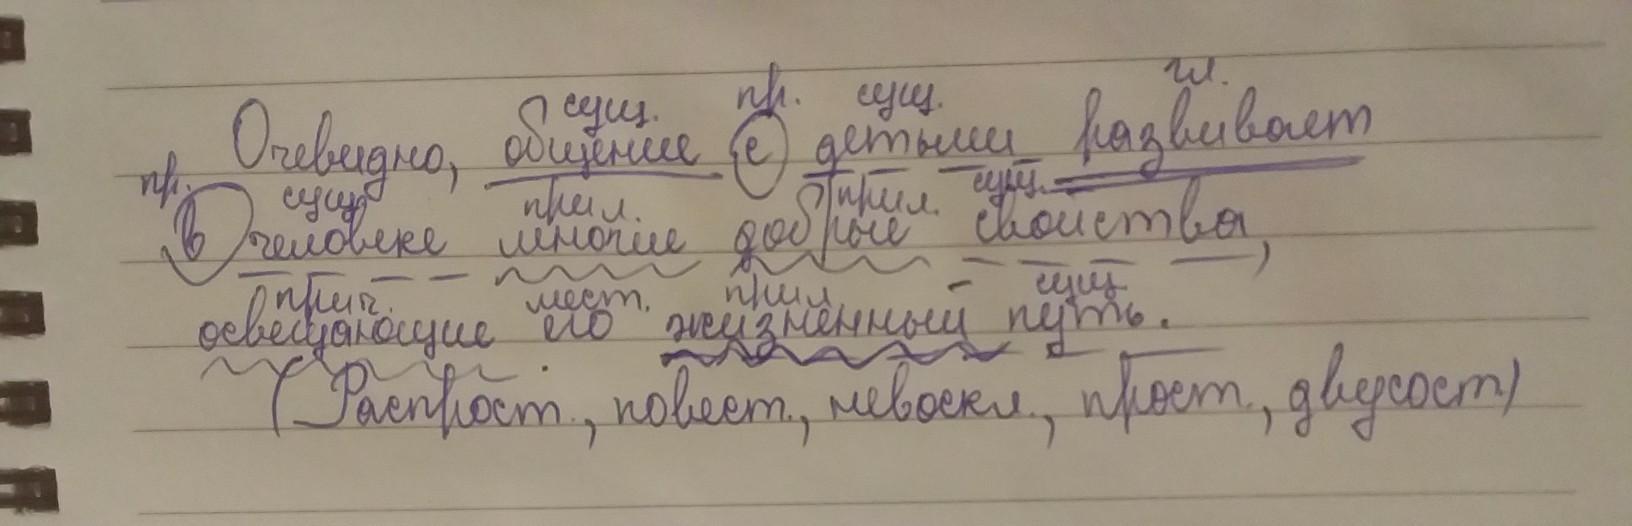 сущ. пр. сущ. гл.
Очевидно, общение с детьми развивает
пр. сущ прил. прил. сущ.
в человеке многие добрые свойства,
прич. мест. прил. сущ
освещающие его жизненный путь.
(Распрост., повест., невоскл., прост., двусост)